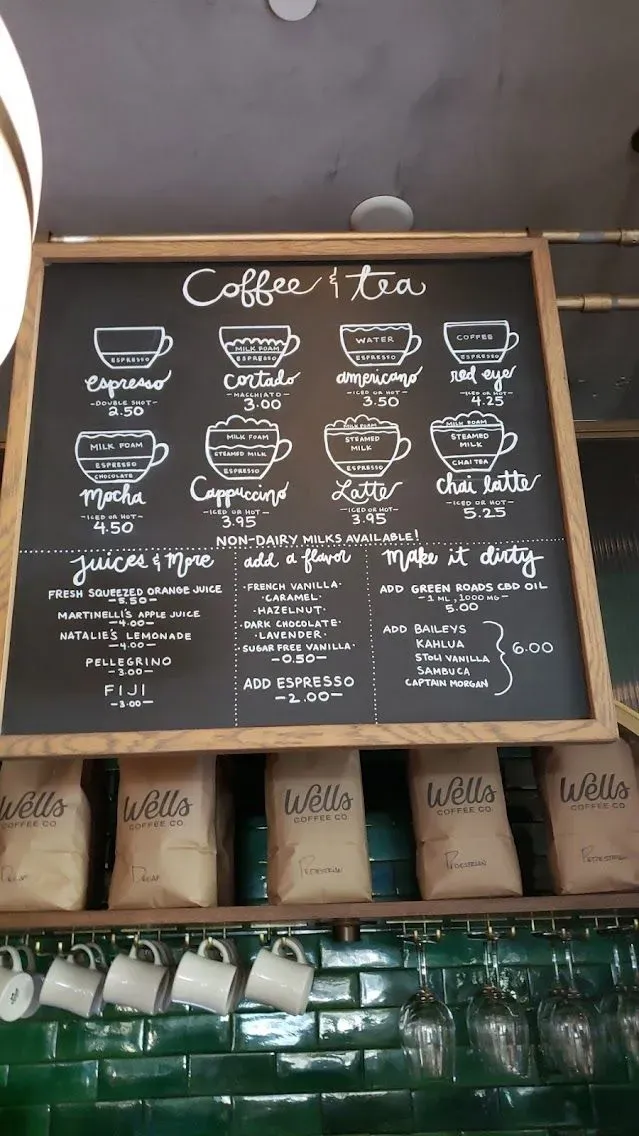 Coffee & tea
ESPRESSO
MILK FOAM
ESPRESSO
WATER
ESPRESSO
COFFEE
ESPRESSO
espresso
-DOUBLE SHOT-
2.50
cortado
-MACCHIATO-
3.00
americano
-ICED OR HOT-
3.50
red eye
-ICED OR HOT-
4.25
MILK FOAM
ESPRESSO
CHOCOLATE
MILK FOAM
STEAMED MILK
ESPRESSO
MILK FOAM
STEAMED
MILK
ESPRESSO
MILK FOAM
STEAMED
MILK
CHAI TEA
Mocha
-ICED OR HOT-
4.50
Cappuccino
-ICED OR HOT-
3.95
Latte
-ICED OR HOT-
3.95
chai latte
-ICED OR HOT-
5.25
NON-DAIRY MILKS AVAILABLE!
juices & More
FRESH SQUEEZED ORANGE JUICE
-5.50-
MARTINELLI'S APPLE JUICE
-4.00-
NATALIE'S LEMONADE
-4.00-
PELLEGRINO
-3.00-
FIJI
-3.00-
add a flavor
·FRENCH VANILLA·
·CARAMEL·
·HAZELNUT·
·DARK CHOCOLATE·
·LAVENDER·
·SUGAR FREE VANILLA·
-0.50-
ADD ESPRESSO
-2.00-
Make it dirty
ADD GREEN ROADS CBD OIL
-1 ML, 1000 MG-
5.00
ADD BAILEYS
KAHLUA
STOLI VANILLA
SAMBUCA
CAPTAIN MORGAN
6.00
Wells
COFFEE CO.
DECAF
Wells
COFFEE CO.
DECAF
Wells
COFFEE CO.
PEDESTRIAN
Wells
COFFEE CO.
PEDESTRIAN
Wells
COFFEE CO.
PEDESTRIAN